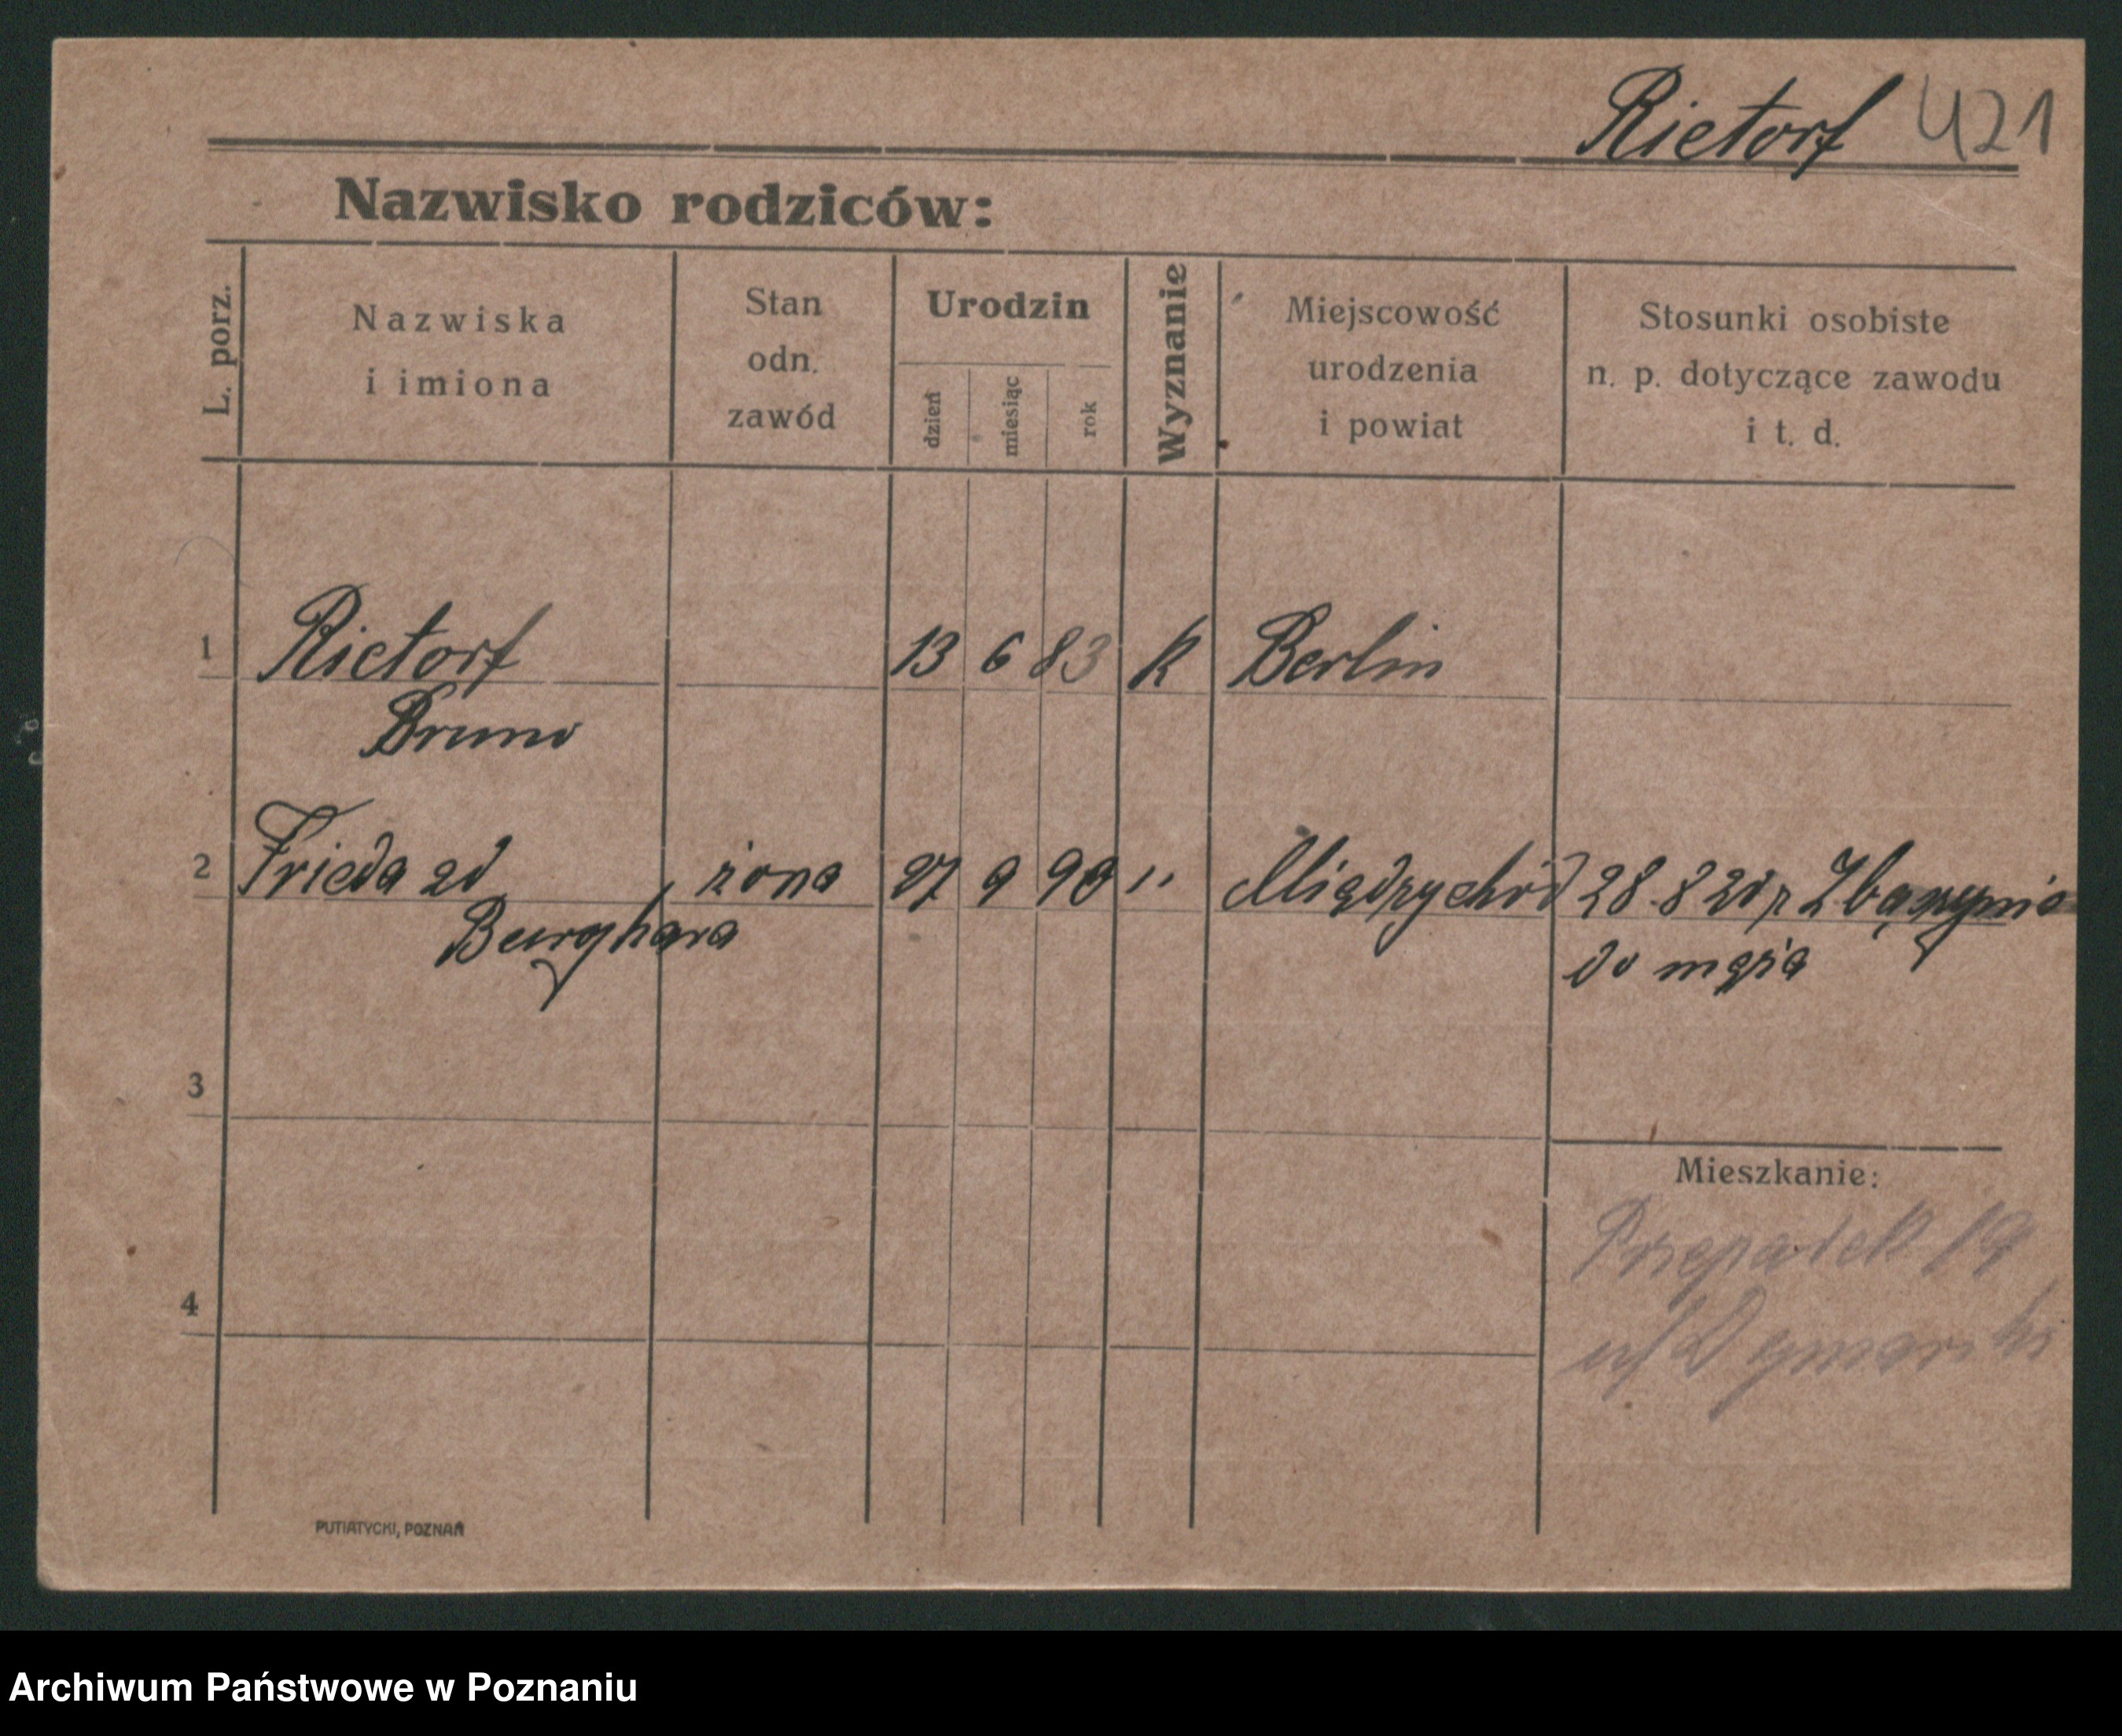 Rietorf 421
Nazwisko rodziców:
L. porz.
Nazwiska
i imiona
Stan
odn.
zawód
Urodzin
dzień
miesiąc
rok
Wyznanie
Miejscowość
urodzenia
i powiat
Stosunki osobiste
n. p. dotyczące zawodu
i t. d.
1 Rietorf 13 6 83 k Berlin
Bruno
2 Frieda żona 27 9 90 " Międzychód 28.8 20 z
do męża
3
Mieszkanie:
Przepadek 19
4
PUTIATYCKI, POZNAŃ
Archiwum Państwowe w Poznaniu